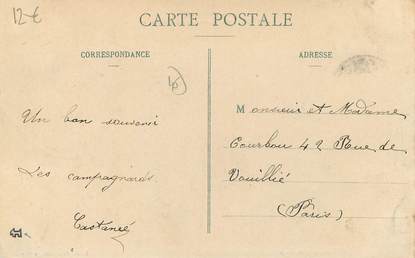 12€
CARTE POSTALE
CORRESPONDANCE
ADRESSE
Un bon souvenir
Les campagnards
Castaneé
Monsieur et Madame
Courbou 42 Rue de
Vouillié
(Paris)